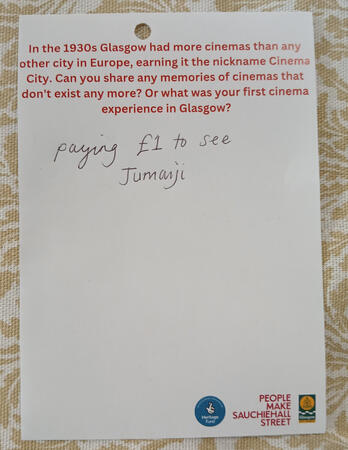 In the 1930s Glasgow had more cinemas than any
other city in Europe, earning it the nickname Cinema
City. Can you share any memories of cinemas that
don't exist any more? Or what was your first cinema
experience in Glasgow?
paying £1 to see
Jumanji
Heritage
Fund
PEOPLE
MAKE
SAUCHIEHALL
STREET